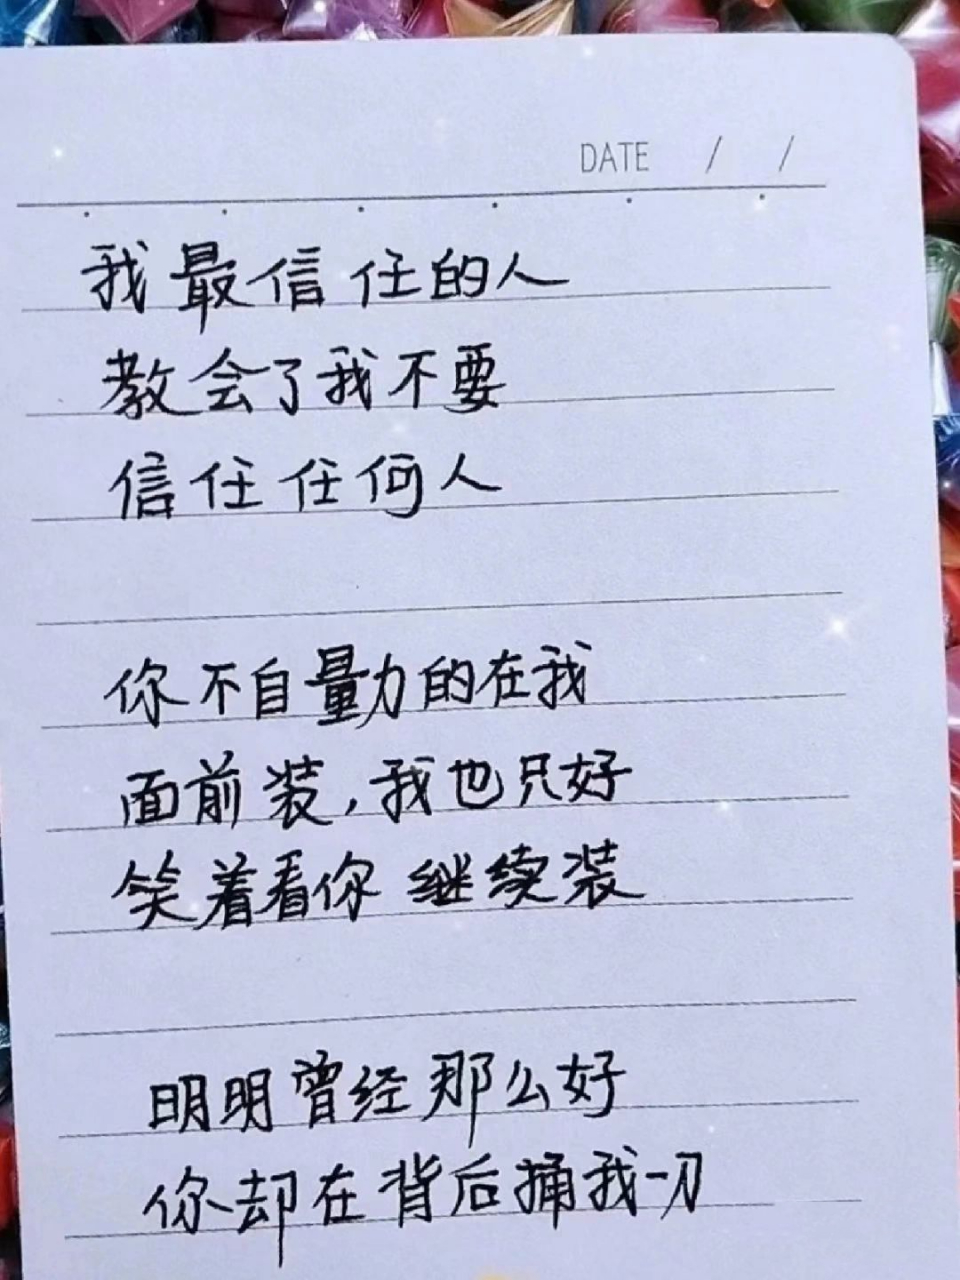 DATE / /
我最信任的人
教会了我不要
信任任何人
你不自量力的在我
面前装,我也只好
笑着看你继续装
明明曾经那么好
你却在背后捅我一刀